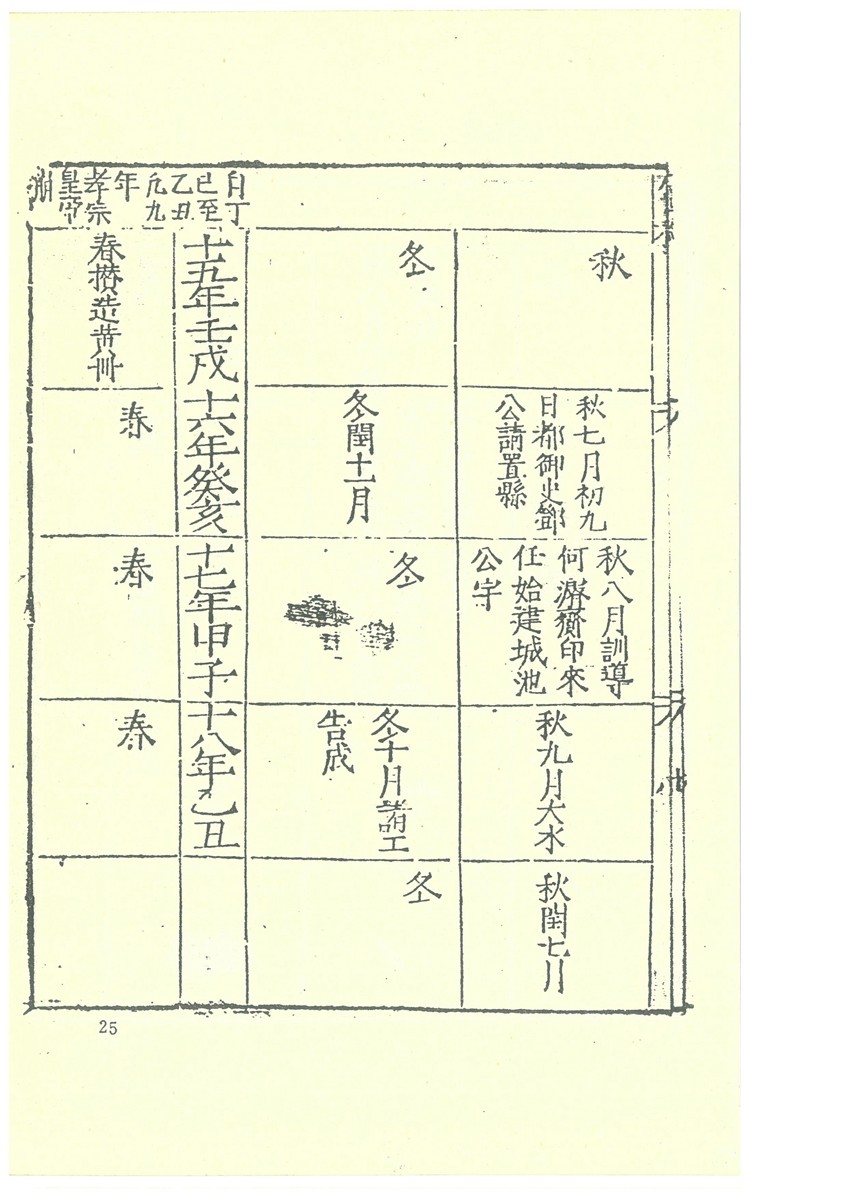 自丁
巳至
乙丑
凡九
年
孝宗
皇帝
崩
秋
秋七月初九
日都御史鄧
公請置縣
秋八月訓導
何濬齎印來
任始建城池
公宇
秋九月大水
秋閏七月
冬
冬閏十一月
冬
冬十月諸工
告成
冬
十五年壬戌
十六年癸亥
十七年甲子
十八年乙丑
春攢造黃冊
春
春
春
25